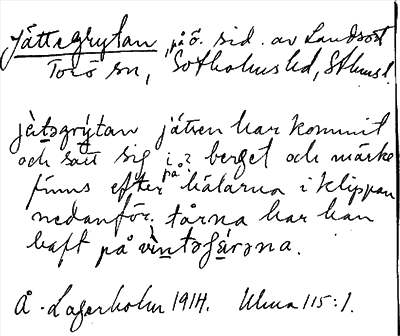 Jättegrytan, på ö. sid. av Landsort
Torö sn, Sotholms hd, Sthms l.
jä̀tsgrýtan jätten har kommit
och satt sig i ? berget och märke
finns efter på hälarna i klippan
nedanför, tårna har han
haft på vintsfárəna.
Å. Lagerholm 1914. Ulma 115:1.